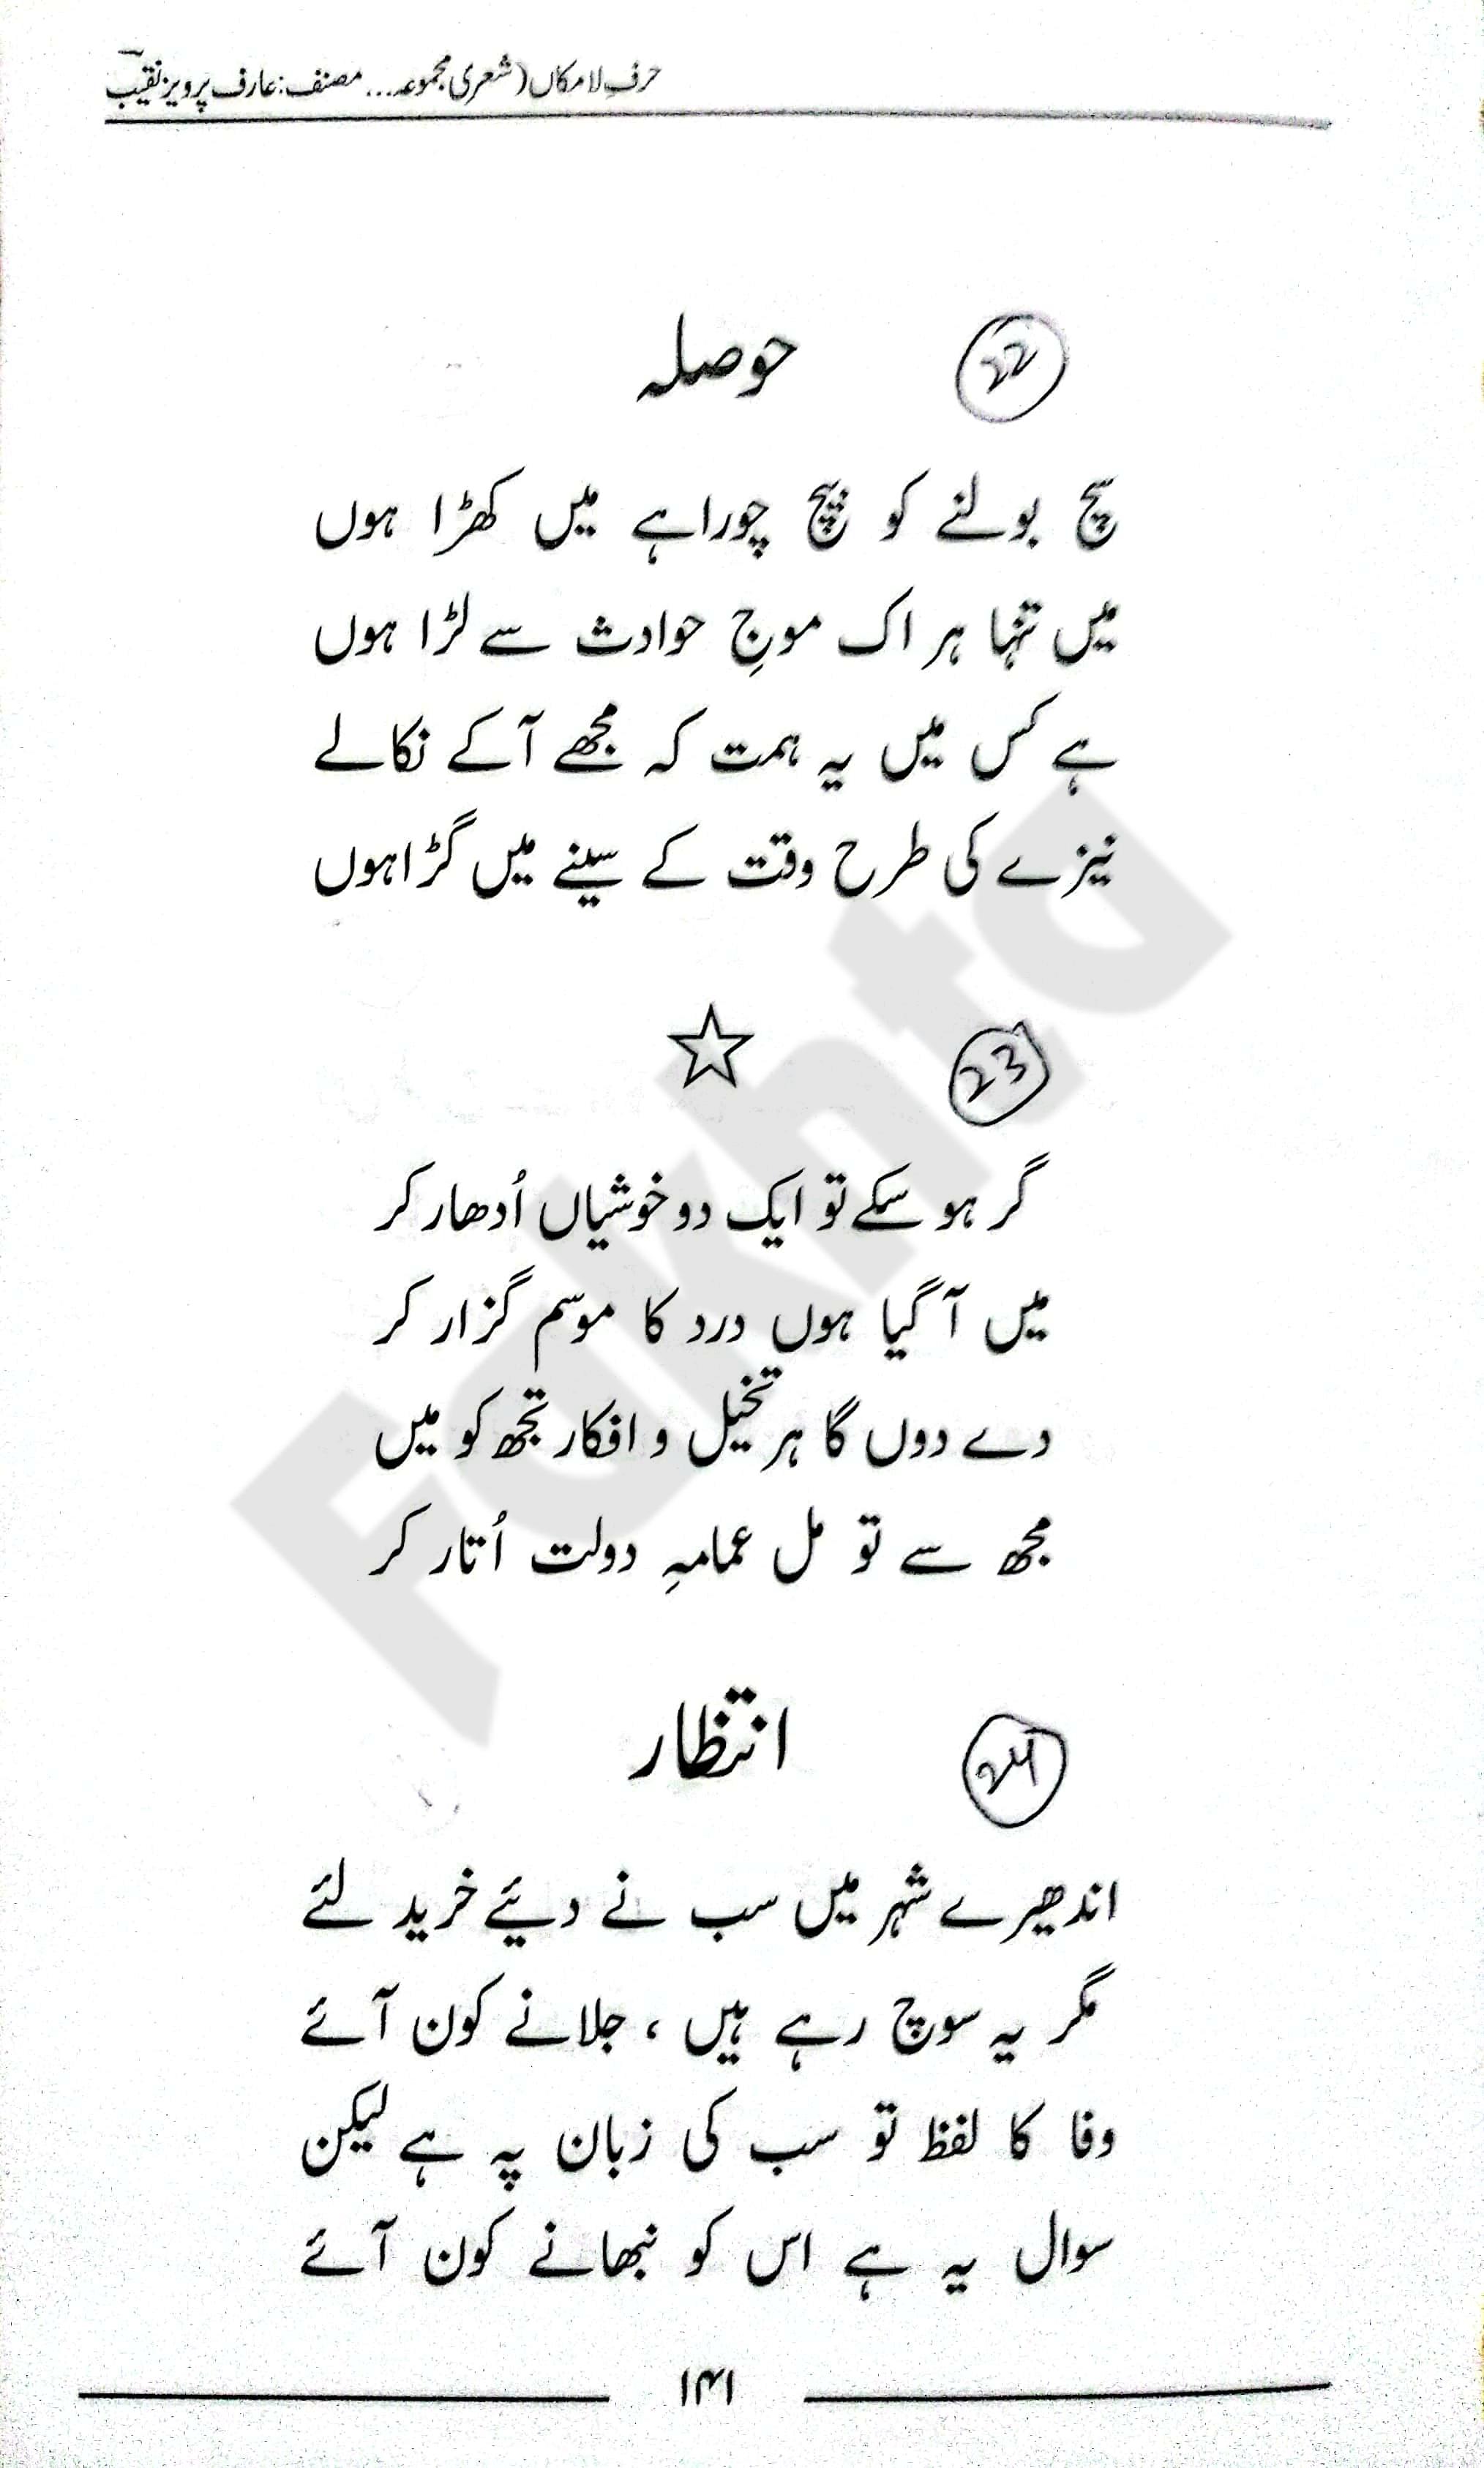 حرفِ لامکاں (شعری مجموعہ... مصنف: عارف پرویز نقیبؔ
حوصلہ
22
سچ بولنے کو بیچ چوراہے میں کھڑا ہوں
میں تنہا ہر اک موجِ حوادث سے لڑا ہوں
ہے کس میں یہ ہمت کہ مجھے آ کے نکالے
نیزے کی طرح وقت کے سینے میں گڑا ہوں
☆
23
گر ہو سکے تو ایک دو خوشیاں اُدھار کر
میں آ گیا ہوں درد کا موسم گزار کر
دے دوں گا ہر تخیل و افکار تجھ کو میں
مجھ سے تو مل عمامہِ دولت اُتار کر
انتظار
24
اندھیرے شہر میں سب نے دیئے خرید لئے
مگر یہ سوچ رہے ہیں ، جلانے کون آئے
وفا کا لفظ تو سب کی زبان پہ ہے لیکن
سوال یہ ہے اس کو نبھانے کون آئے
۱۴۱
Fakhta